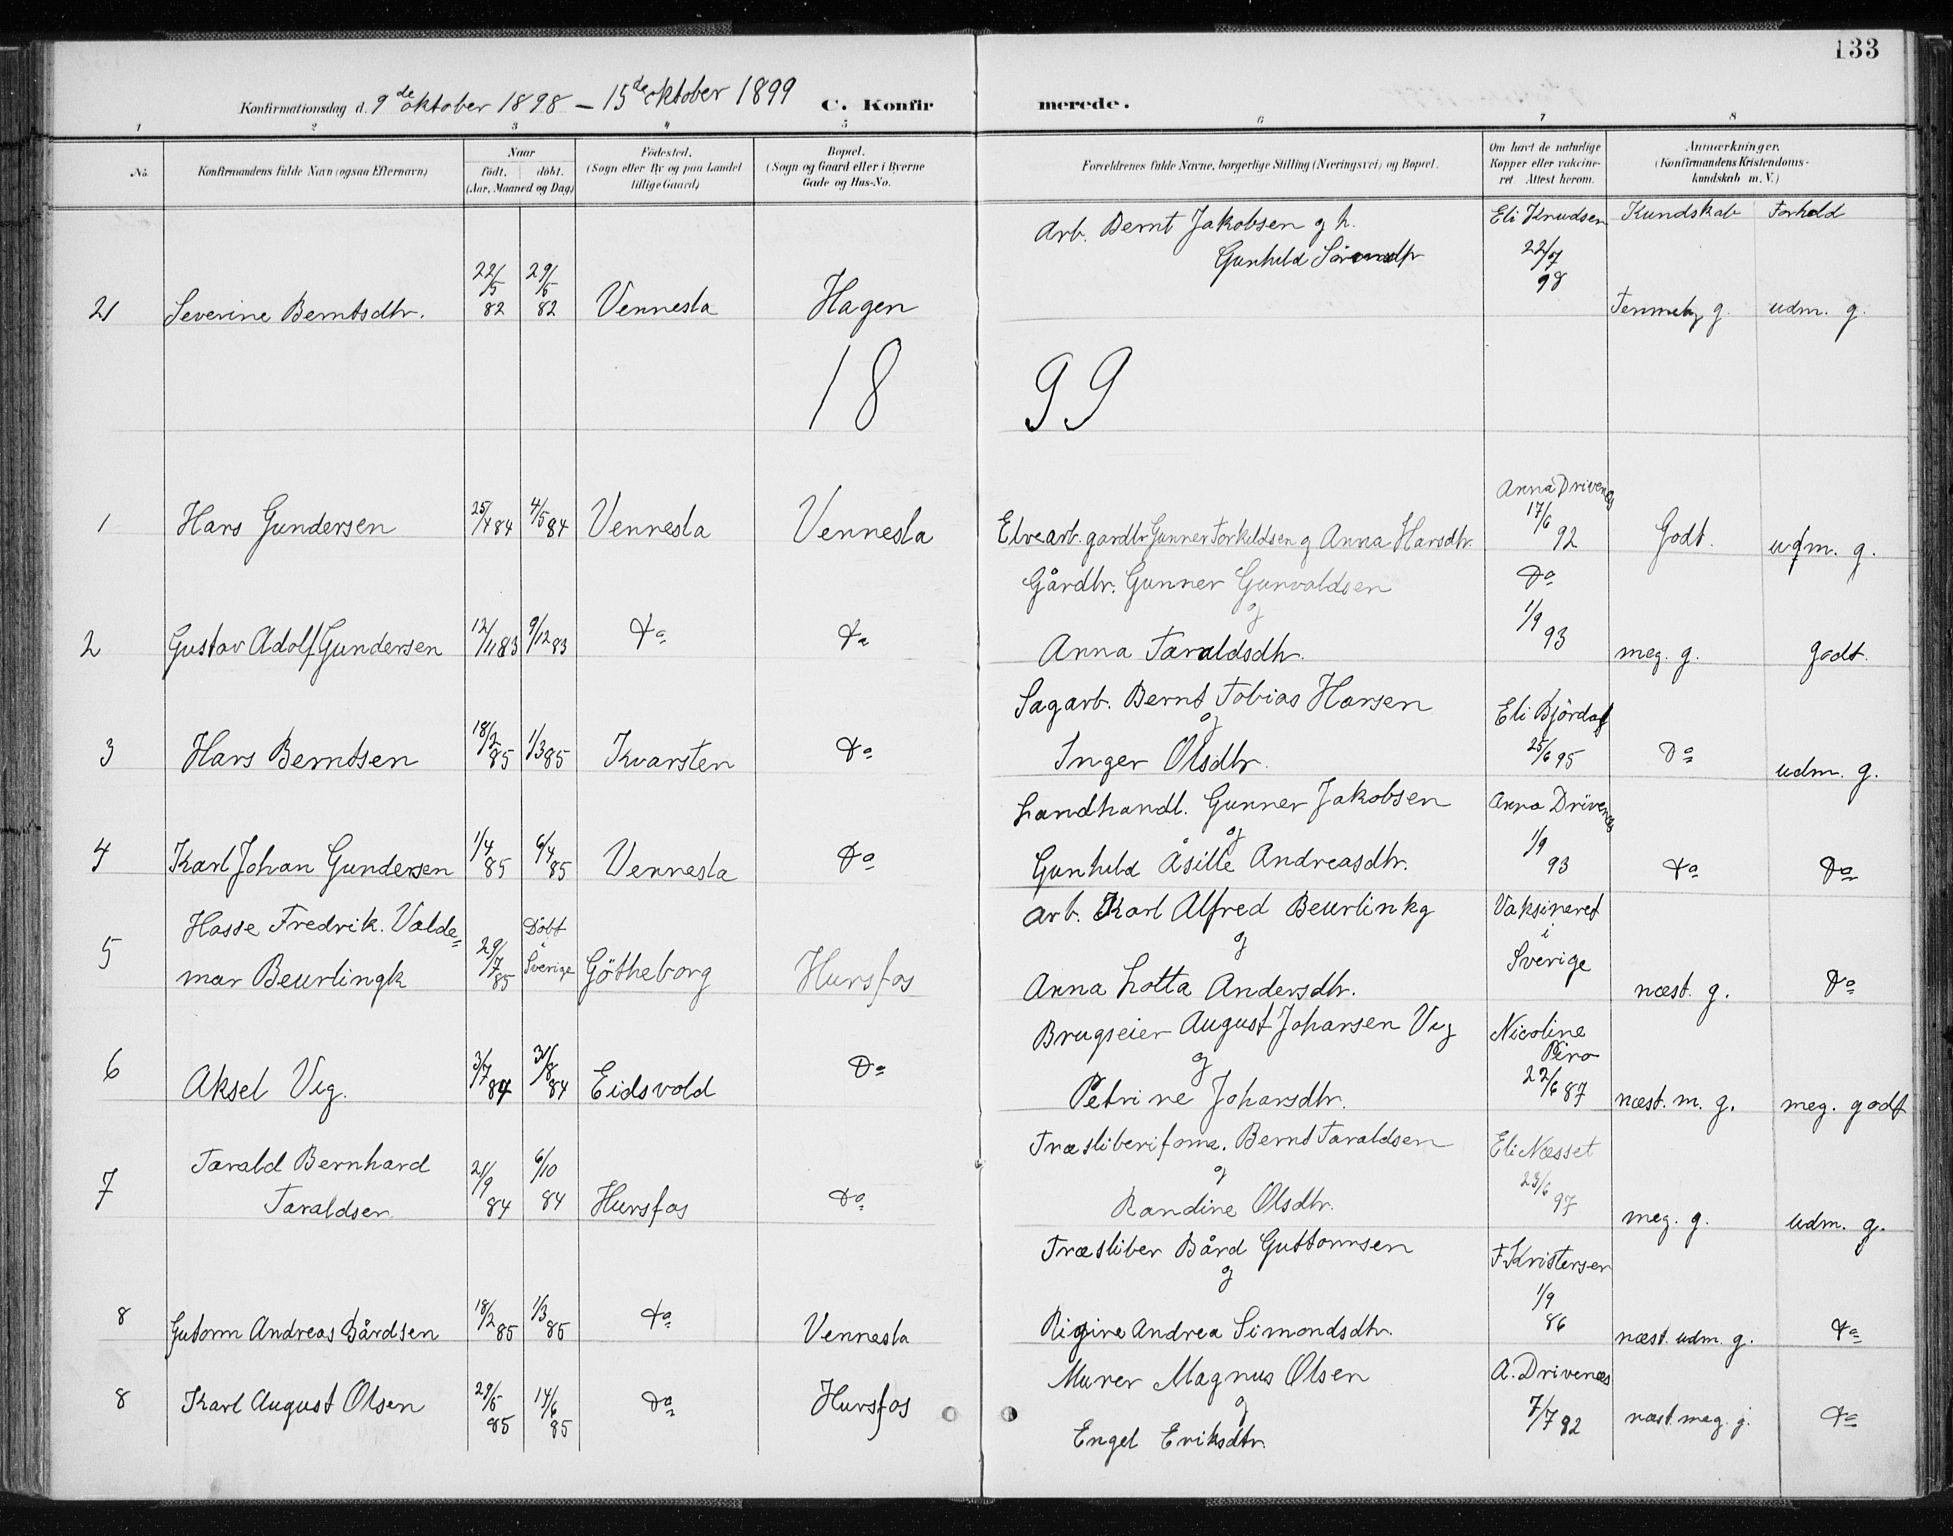 133
Konfirmationsdag d. 9de oktober 1898 – 15de oktober 1899 C. Konfirmerede.
1 2 3 4 5 6 7 8
No. Konfirmandens fulde Navn (ogsaa Efternavn) Naar födt. döbt. (Aar, Maaned og Dag) Födested. (Sogn eller By og paa Landet tillige Gaard) Bopæl. (Sogn og Gaard eller i Byerne Gade og Hus-No. Forældrenes fulde Navne, borgerlige Stilling (Næringsvei) og Bopæl. Om havt de naturlige Kopper eller vakcineret Attest herom. Anmærkninger. (Konfirmandens Kristendomskundskab m. V.)
Kundskab Forhold
Arb. Bernt Jakobsen og h. Eli Knudsen
21 Severine Berntsdtr. 22/5 82 29/5 82 Vennesla Hagen Gunhild 22/7 98 g. udm. g.
18 99
1 Hans Gundersen 25/4 84 4/5 84 Vennesla Vennesla Elvearb. gardbr Gunner Torkildsen og Anna Hansdtr. Anna Drivenes 17/6 92 Godt. udm. g.
Gårdbr. Gunner Gunvaldsen Do
og
2 Gustav Adolf Gundersen 12/11 83 9/12 83 Do Do Anna Taraldsdtr. 1/9 93 meg. g. godt.
Sagarb. Bernt Tobias Hansen Eli Björdal
og
3 Hans Berntsen 18/2 85 1/3 85 Kvarsten Do Inger Olsdtr. 25/6 95 Do udm. g.
Landhandl. Gunner Jakobsen Anna Drivenes
og
4 Karl Johan Gundersen 1/4 85 6/4 85 Vennesla Do Gunhild Åsille Andreasdtr. 1/9 93 Do Do
Hasse Fredrik. Valde= Döbt arb. Karl Alfred Beurlinkg Vaksineret
i og i
5 mar Beurlingk 29/7 85 Sverige Götheborg Hunsfos Anna Lotta Andersdtr. Sverige næst. g. Do
Brugseier August Johansen Vig Nicoline
og
6 Aksel Vig. 3/7 84 31/8 84 Eidsvold Do Petrine Johansdtr. 22/6 87 næst. m. g. meg. godt
Tarald Bernhard Bernt Taraldsen Eli Næsset
og
7 Taraldsen 21/9 84 6/10 84 Hunsfos Do Randine Olsdtr. 23/6 97 meg. g. udm. g.
Træsliber Bård Guttormsen F. Kristensen
og
8 Gutorm Andreas Bårdsen 18/2 85 1/3 85 Do Vennesla Andrea Simondsdtr. 1/9 86 næst. udm. g. Do
Murer Magnus Olsen A. Drivenæs
og
8 Karl August Olsen 29/5 85 14/6 85 Do Hunsfos Engel Eriksdtr. 7/7 92 næst meg. g. Do